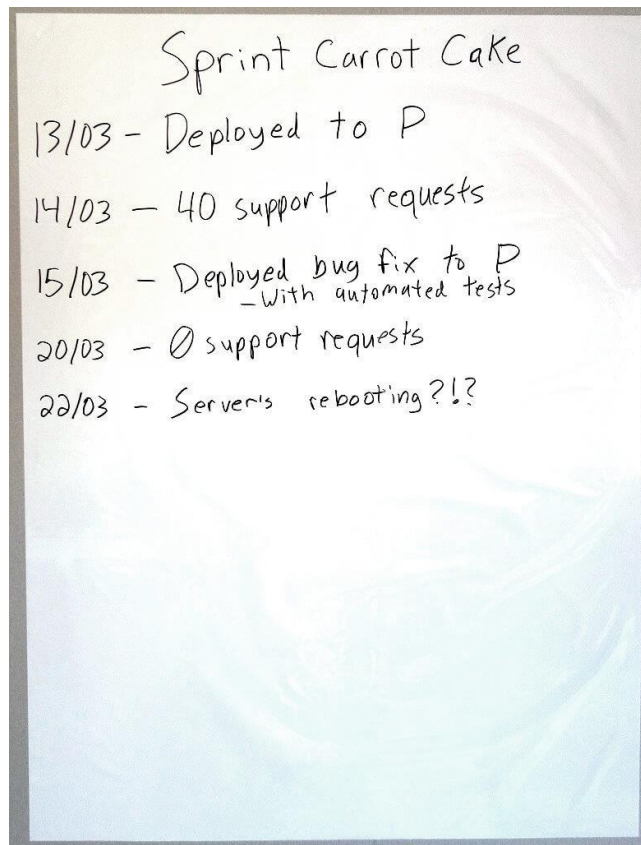 Sprint Carrot Cake
13/03 - Deployed to P
14/03 - 40 support requests
15/03 - Deployed bug fix to P
- With automated tests
20/03 - 0 support requests
22/03 - Server's rebooting?!?